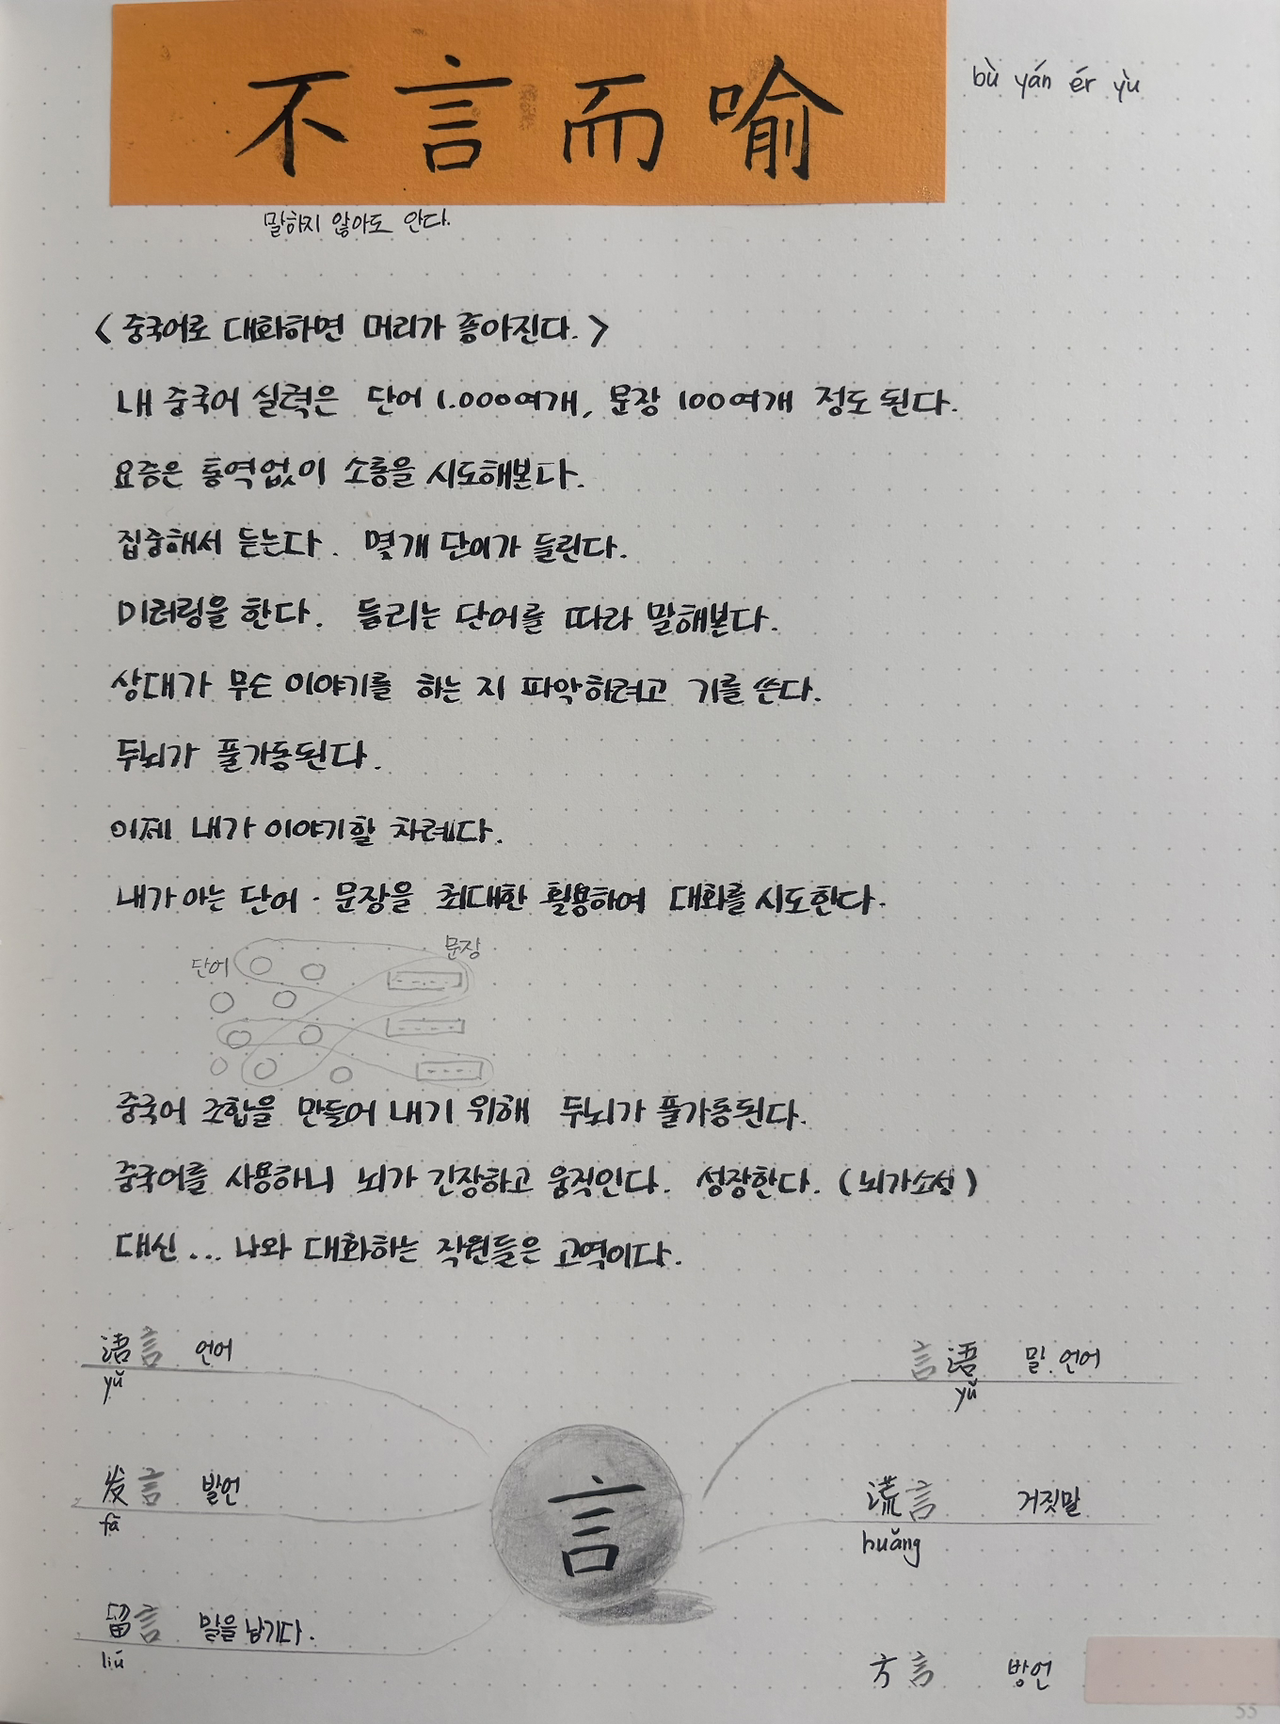 不言而喻
bù yán ér yù
말하지 않아도 안다.
<중국어로 대화하면 머리가 좋아진다.>
내 중국어 실력은 단어 1.000여개, 문장 100여개 정도 된다.
요즘은 통역없이 소통을 시도해본다.
집중해서 듣는다. 몇개 단어가 들린다.
미러링을 한다. 들리는 단어를 따라 말해본다.
상대가 무슨 이야기를 하는 지 파악하려고 기를 쓴다.
두뇌가 풀가동된다.
이제 내가 이야기할 차례다.
내가 아는 단어·문장을 최대한 활용하여 대화를 시도한다.
단어 문장
중국어 조합을 만들어 내기 위해 두뇌가 풀가동된다.
중국어를 사용하니 뇌가 긴장하고 움직인다. 성장한다. (뇌가소성)
대신... 나와 대화하는 직원들은 고역이다.
语言 언어
yǔ
发言 발언
fā
留言 말을 남기다.
liú
言
言语 말. 언어
yǔ
谎言 거짓말
huǎng
方言 방언
55